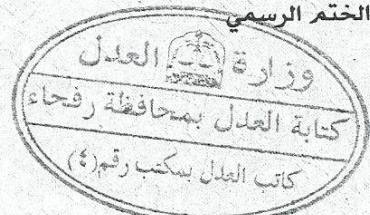 الختم الرسمي
وزارة العدل
كتابة العدل بمحافظة رفحاء
كاتب العدل بمكتب رقم (٤)